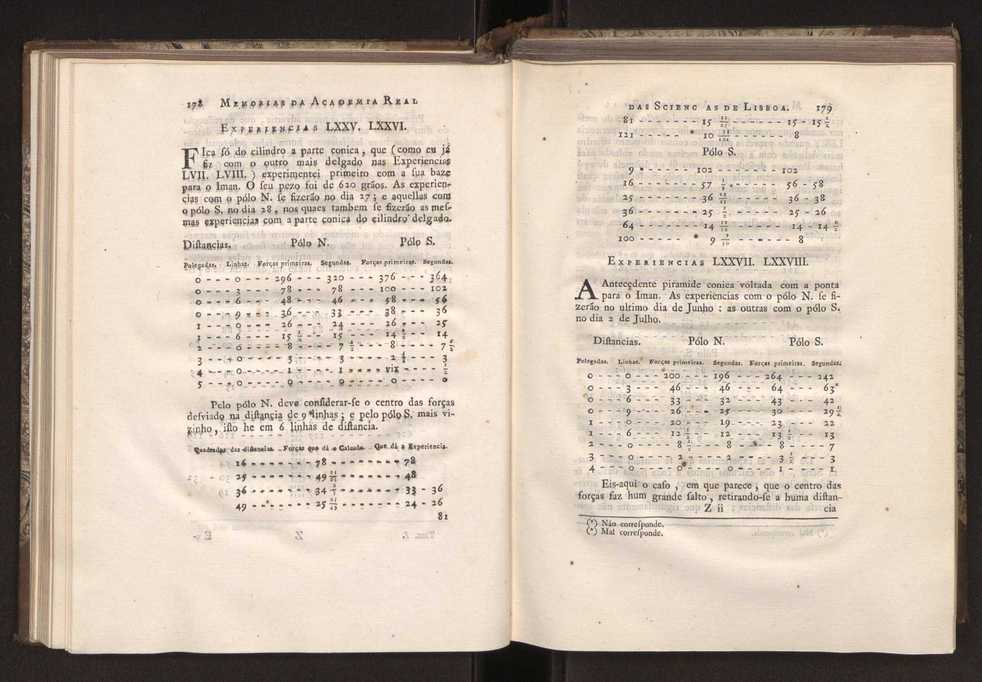 178 MEMORIAS DA ACADEMIA REAL
EXPERIENCIAS LXXV. LXXVI.
FIca ſó do cilindro a parte conica, que (como eu já
fiz com o outro mais delgado nas Experiencias
LVII. LVIII.) experimentei primeiro com a ſua baze
para o Iman. O ſeu pezo foi de 620 grãos. As experien-
cias com o pólo N. ſe fizerão no dia 27; e aquellas com
o pólo S. no dia 28, nos quaes tambem ſe fizerão as meſ-
mas experiencias com a parte conica do cilindro delgado.
Diſtancias. Pólo N. Pólo S.
Polegadas. Linhas. Forças primeiras. Segundas. Forças primeiras. Segundas.
0 - - - 0 - - - - 296 - - - 320 - - - 376 - - - 364
0 - - - 3 - - - - 78 - - - 78 - - - 100 - - - 102
0 - - - 6 - - - - 48 - - - 46 - - - 58 - - - 56
0 - - - 9 - - - 36 - - - 33 - - - 38 - - - 36
1 - - - 0 - - - - 26 - - - 24 - - - 26 - - - 25
1 - - - 6 - - - - 15 ½ - - - 15 - - - 14 ½ - - - 14
2 - - - 0 - - - - 8 - - - 7 ½ - - - 8 - - - 7 ½
3 - - - 0 - - - - 3 - - - 3 - - - 2 ½ - - - 3
4 - - - 0 - - - - 1 - - - 1 - - - VIX - - - 1
5 - - - 0 - - - - 0 - - - 0 - - - 0 - - - 0
Pelo pólo N. deve conſiderar-ſe o centro das forças
deſviado na diſtancia de 9 linhas; e pelo pólo S. mais vi-
zinho, iſto he em 6 linhas de diſtancia.
Quadrados das diſtancias. Forças que dá o Calculo. Que dá a Experiencia.
16 - - - - - - 78 - - - - - - - 78
25 - - - - - - 49 23/25 - - - - - - 48
36 - - - - - - 34 ⅔ - - - - - - 33 - 36
49 - - - - - - 25 23/49 - - - - - - 24 - 26
81
DAS SCIENC AS DE LISBOA. 179
81 - - - - - - 15 - - - - - - 15 - 15 ½
121 - - - - - * 10 - - - - - - 8
Pólo S.
9 - - - - - - 102 - - - - - - - 102
16 - - - - - - 57 - - - - - - 56 - 58
25 - - - - - - 36 - - - - - - 36 - 38
36 - - - - - - 25 ½ - - - - - - 25 - 26
64 - - - - - - 14 - - - - - - 14 - 14 ½
100 - - - - - * 9 - - - - - - 8
EXPERIENCIAS LXXVII. LXXVIII.
AAntecedente piramide conica voltada com a ponta
para o Iman. As experiencias com o pólo N. ſe fi-
zerão no ultimo dia de Junho: as outras com o pólo S.
no dia 2 de Julho.
Diſtancias. Pólo N. Pólo S.
Polegadas. Linhas. Forças primeiras. Segundas. Forças primeiras. Segundas.
0 - - - 0 - - - 200 - - - 196 - - - 264 - - - 242
0 - - - 3 - - - 46 - - - 46 - - - 64 - - - 63
0 - - - 6 - - - 33 - - - 32 - - - 43 - - - 42
0 - - - 9 - - - 26 - - - 25 - - - 30 - - - 29 ½
1 - - - 0 - - - 20 - - - 19 - - - 23 - - - 22
1 - - - 6 - - - 12 ½ - - - 12 - - - 13 ½ - - - 13
2 - - - 0 - - - 8 - - - 8 - - - 8 - - - 7
3 - - - 0 - - - 2 - - - 2 - - - 3 ½ - - - 3
4 - - - 0 - - - 0 - - - 0 - - - 1 - - - 1
Eis-aqui o caſo, em que parece, que o centro das
forças faz hum grande ſalto, retirando-ſe a huma diſtan-
Z ii cia
(*) Não correſponde.
(*) Mal correſponde.